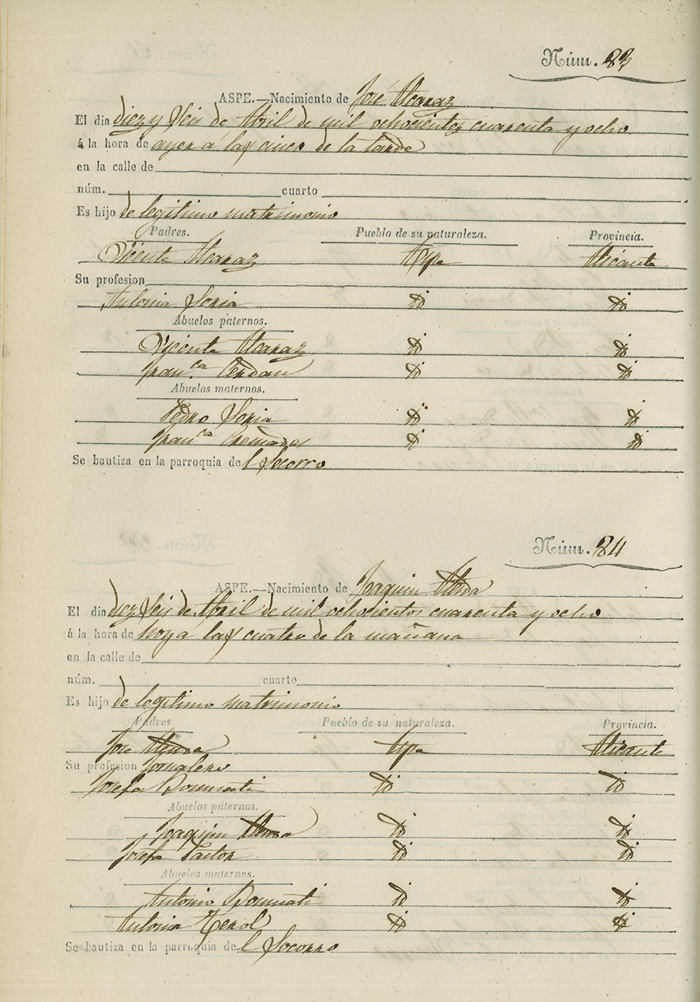 Núm. 83
ASPE.—Nacimiento de José Alcaraz
El dia diez y seis de Abril de mil ochocientos cuarenta y ocho
á la hora de ayer á las cinco de la tarde
en la calle de
núm. cuarto
Es hijo de legitimo matrimonio
Padres. Pueblo de su naturaleza. Provincia.
Vicente Alcaraz Aspe Alicante
Su profesion
Antonia Soria id id
Abuelos paternos.
Vicente Alcaraz id id
Fran.ca Cerdan id id
Abuelos maternos.
Pedro Soria id id
Fran.ca Cremades id id
Se bautiza en la parroquia de l Socorro
Núm. 84
ASPE.—Nacimiento de Joaquin
El dia diez y seis de Abril de mil ochocientos cuarenta y ocho
á la hora de hoy a las cuatro de la mañana
en la calle de
núm. cuarto
Es hijo de legitimo matrimonio
Padres Pueblo de su naturaleza. Provincia.
José Aspe Alicante
Su profesion Jornalero
Josefa id id
Abuelos paternos.
Joaquin id id
Josefa Pastor id id
Abuelos maternos.
Antonio id id
Antonia Terol id id
Se bautiza en la parroquia de l Socorro